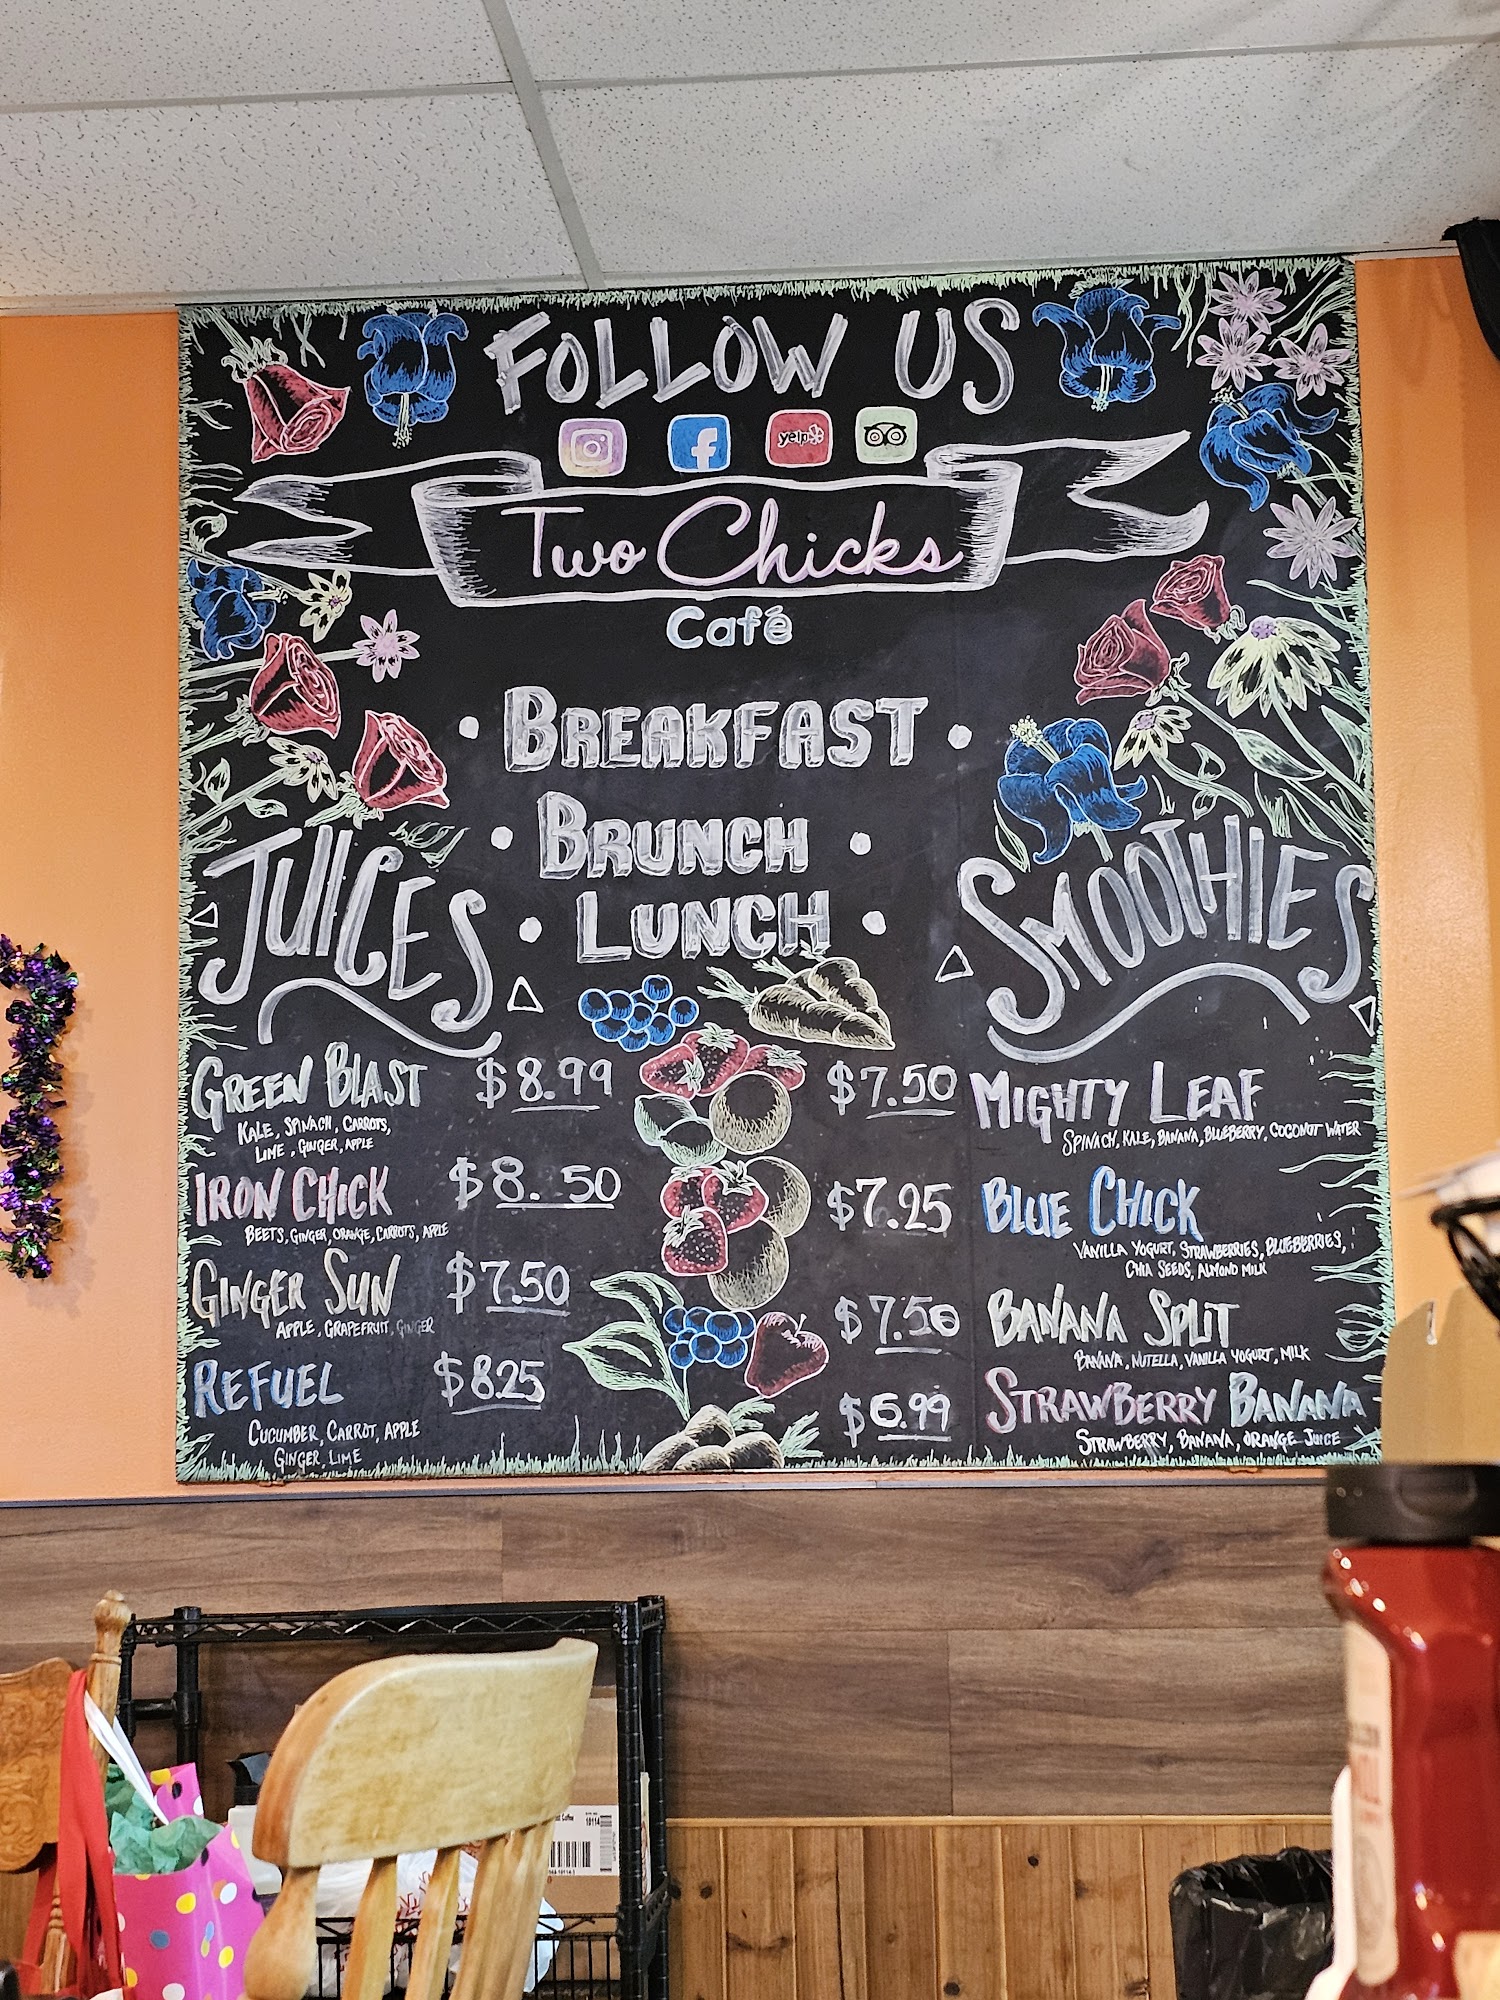 FOLLOW US
yelp
Two Chicks
Café
BREAKFAST
BRUNCH
LUNCH
JUICES
GREEN BLAST $8.99
KALE, SPINACH, CARROTS,
LIME, GINGER, APPLE
IRON CHICK $8.50
BEETS, GINGER, ORANGE, CARROTS, APPLE
GINGER SUN $7.50
APPLE, GRAPEFRUIT, GINGER
REFUEL $8.25
CUCUMBER, CARROT, APPLE
GINGER, LIME
SMOOTHIES
$7.50 MIGHTY LEAF
SPINACH, KALE, BANANA, BLUEBERRY, COCONUT WATER
$7.25 BLUE CHICK
VANILLA YOGURT, STRAWBERRIES, BLUEBERRIES,
CHIA SEEDS, ALMOND MILK
$7.50 BANANA SPLIT
BANANA, NUTELLA, VANILLA YOGURT, MILK
$6.99 STRAWBERRY BANANA
STRAWBERRY, BANANA, ORANGE JUICE
10114